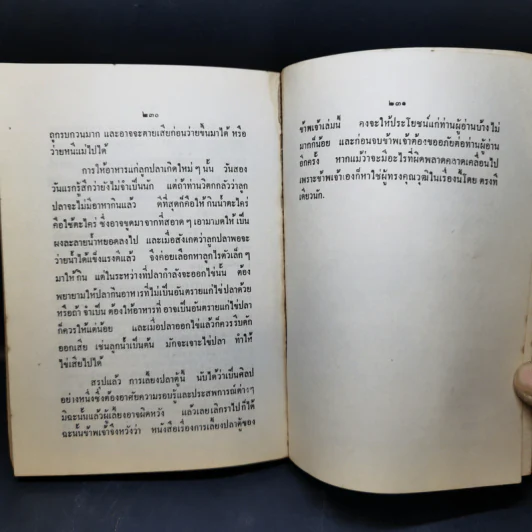 ๒๓๐
ถูกรบกวนมาก และอาจจะตายเสียก่อนว่ายขึ้นมาได้ หรือ
ว่ายหนีแม่ไปได้
การให้อาหารแก่ลูกปลาเกิดใหม่ ๆ นั้น วันสอง
วันแรกรู้สึกว่ายังไม่จำเป็นนัก แต่ถ้าท่านวิตกกลัวว่าลูก
ปลาจะไม่มีอาหารกินแล้ว ดีที่สุดก็คือให้กินน้ำตะไคร่
คือใช้ตะไคร่ ซึ่งอาจขูดมาจากที่สะอาด ๆ เอามาบดให้เป็น
ผงละลายน้ำหยอดลงไป และเมื่อสังเกตว่าลูกปลาพอจะ
ว่ายน้ำได้แข็งแรงดีแล้ว จึงค่อยเลือกหาลูกไรตัวเล็ก ๆ
มาให้กิน แต่ในระหว่างที่ปลากำลังจะออกไข่นั้น ต้อง
พยายามให้ปลากินอาหารที่ไม่เป็นอันตรายแก่ไข่ปลาด้วย
หรือถ้าจำเป็นต้องให้อาหารที่อาจเป็นอันตรายแก่ไข่ปลา
ก็ควรให้แต่น้อย และเมื่อปลาออกไข่แล้วก็ควรรีบตัก
ออกเสีย เช่นลูกน้ำเป็นต้น มักจะเจาะไข่ปลา ทำให้
ไข่เสียไปได้
สรุปแล้ว การเลี้ยงปลาตู้นี้ นับได้ว่าเป็นศิลป
อย่างหนึ่งซึ่งต้องอาศัยความรอบรู้และประสพการณ์ต่างๆ
มิฉะนั้นแล้วผู้เลี้ยงอาจผิดหวัง แล้วเลยเลิกราไปก็ได้
ฉะนั้นข้าพเจ้าจึงหวังว่า หนังสือเรื่องการเลี้ยงปลาตู้ของ
๒๓๑
ข้าพเจ้าเล่มนี้ คงจะให้ประโยชน์แก่ท่านผู้อ่านบ้างไม่
มากก็น้อย และก่อนจบข้าพเจ้าต้องขออภัยต่อท่านผู้อ่าน
อีกครั้ง หากแม้ว่าจะมีอะไรที่ผิดพลาดคลาดเคลื่อนไป
เพราะข้าพเจ้าเองก็หาใช่ผู้ทรงคุณวุฒิในเรื่องนี้โดยตรงที
เดียวนัก.